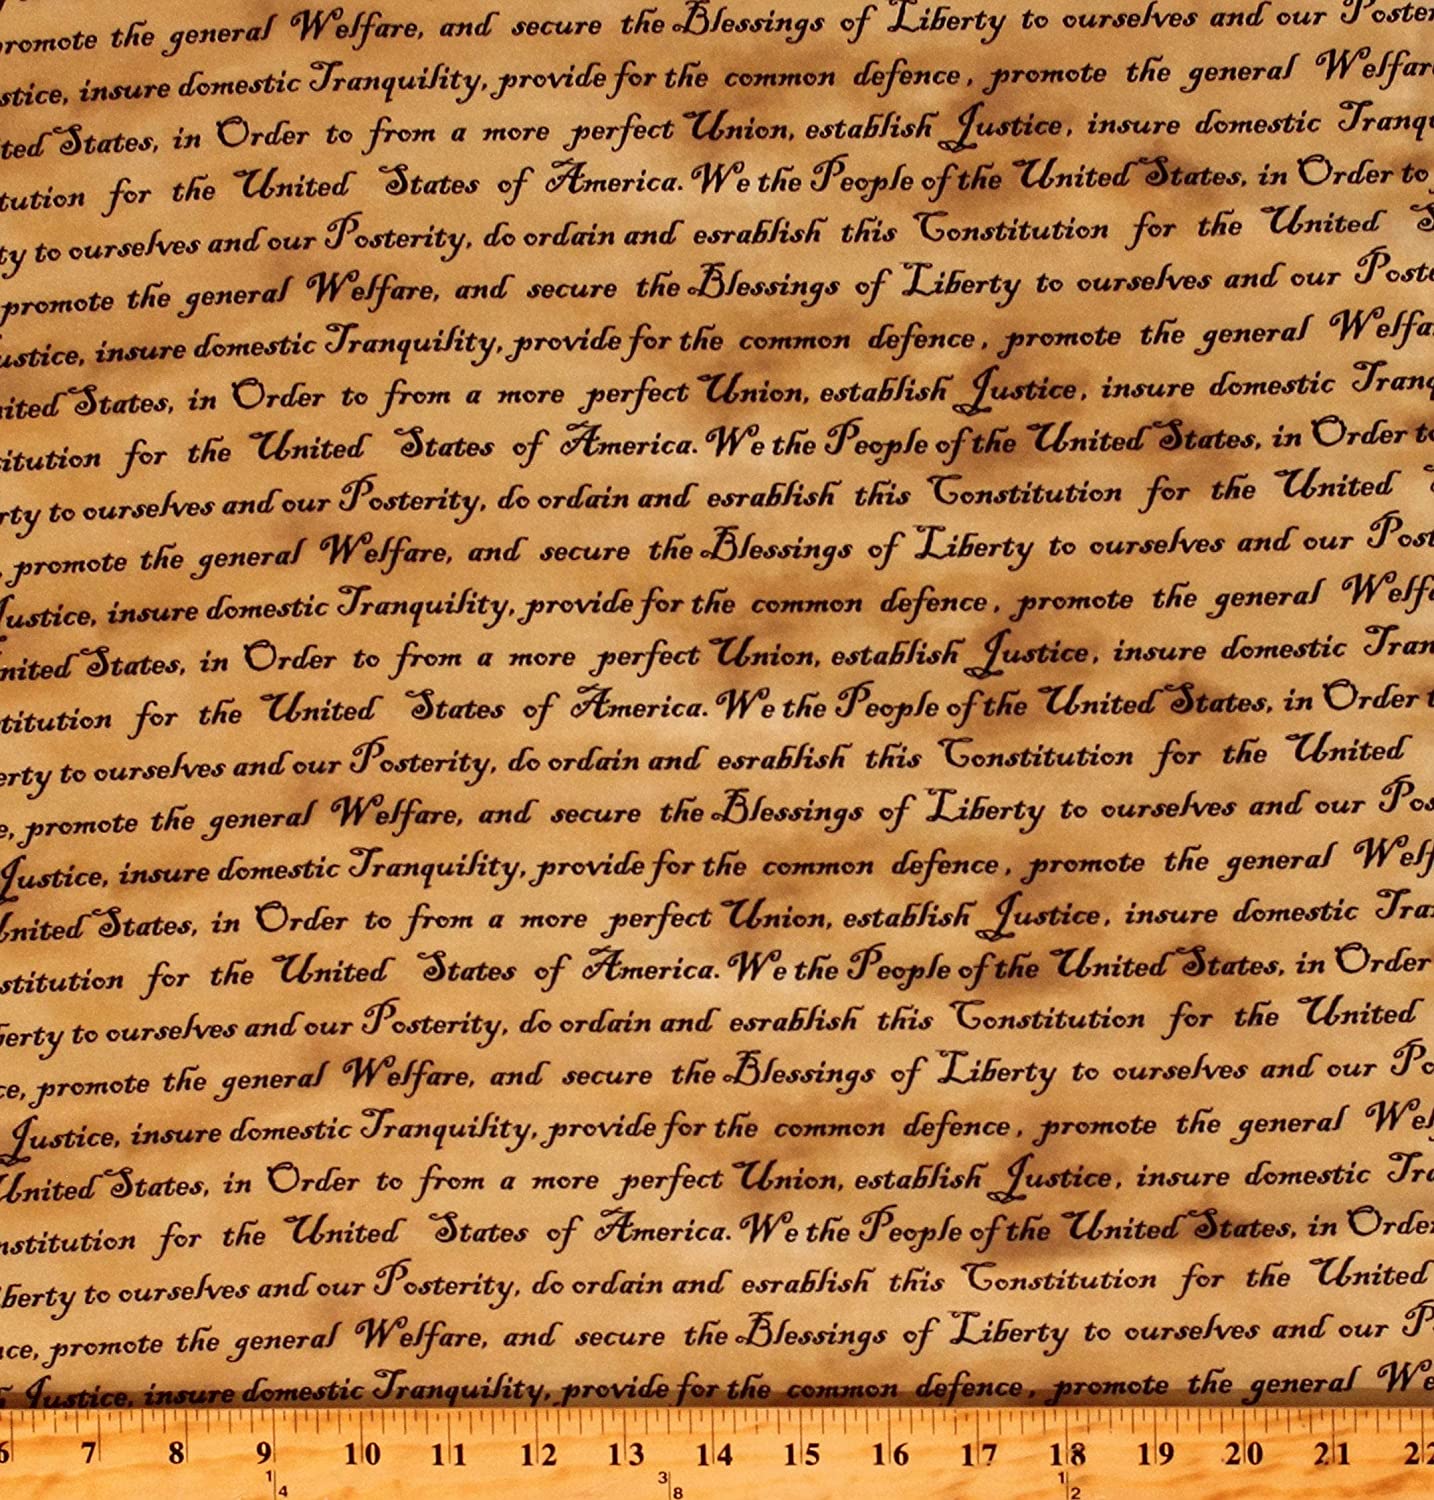 promote the general Welfare, and secure the Blessings of Liberty to ourselves and our
insure domestic Tranquility, provide for the common defence, promote the general
States, in Order to from a more perfect Union, establish Justice, insure domestic
for the United States of America. We the People of the United States, in Order to
to ourselves and our Posterity, do ordain and esrablish this Constitution for the United
promote the general Welfare, and secure the Blessings of Liberty to ourselves and our
insure domestic Tranquility, provide for the common defence, promote the general
States, in Order to from a more perfect Union, establish Justice, insure domestic
for the United States of America. We the People of the United States, in Order to
to ourselves and our Posterity, do ordain and esrablish this Constitution for the United
promote the general Welfare, and secure the Blessings of Liberty to ourselves and our
Justice, insure domestic Tranquility, provide for the common defence, promote the general
States, in Order to from a more perfect Union, establish Justice, insure domestic
for the United States of America. We the People of the United States, in Order
to ourselves and our Posterity, do ordain and esrablish this Constitution for the United
promote the general Welfare, and secure the Blessings of Liberty to ourselves and our
Justice, insure domestic Tranquility, provide for the common defence, promote the general
United States, in Order to from a more perfect Union, establish Justice, insure domestic
for the United States of America. We the People of the United States, in Order
to ourselves and our Posterity, do ordain and esrablish this Constitution for the United
promote the general Welfare, and secure the Blessings of Liberty to ourselves and our
Justice, insure domestic Tranquility, provide for the common defence, promote the general
United States, in Order to from a more perfect Union, establish Justice, insure domestic
for the United States of America. We the People of the United States, in Order
to ourselves and our Posterity, do ordain and esrablish this Constitution for the United
promote the general Welfare, and secure the Blessings of Liberty to ourselves and our
Justice, insure domestic Tranquility, provide for the common defence, promote the general
6 7 8 9 10 11 12 13 14 15 16 17 18 19 20 21 22
1/4 3/8 1/2